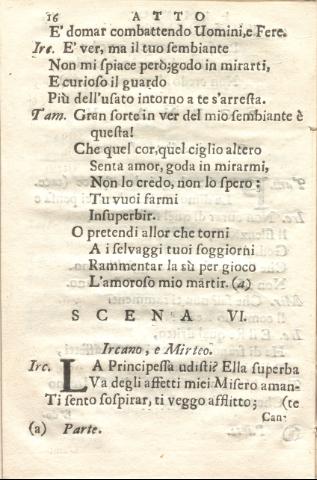 16 ATTO
E' domar combattendo Uomini, e Fere.
Irc. E' ver, ma il tuo sembiante
Non mi spiace però; godo in mirarti,
E curioso il guardo
Più dell'usato intorno a te s'arresta.
Tam. Gran sorte in ver del mio sembiante è
questa!
Che quel cor, quel ciglio altero
Senta amor, goda in mirarmi,
Non lo credo, non lo spero;
Tu vuoi farmi
Insuperbir.
O pretendi allor che torni
A i selvaggi tuoi soggiorni
Rammentar la sù per gioco
L'amoroso mio martir. (a)
SCENA VI.
Ircano, e Mirteo.
Irc. LA Principessa udisti? Ella superba
Va degli affetti miei Misero aman-
Ti sento sospirar, ti veggo afflitto; (te
Can-
(a) Parte.